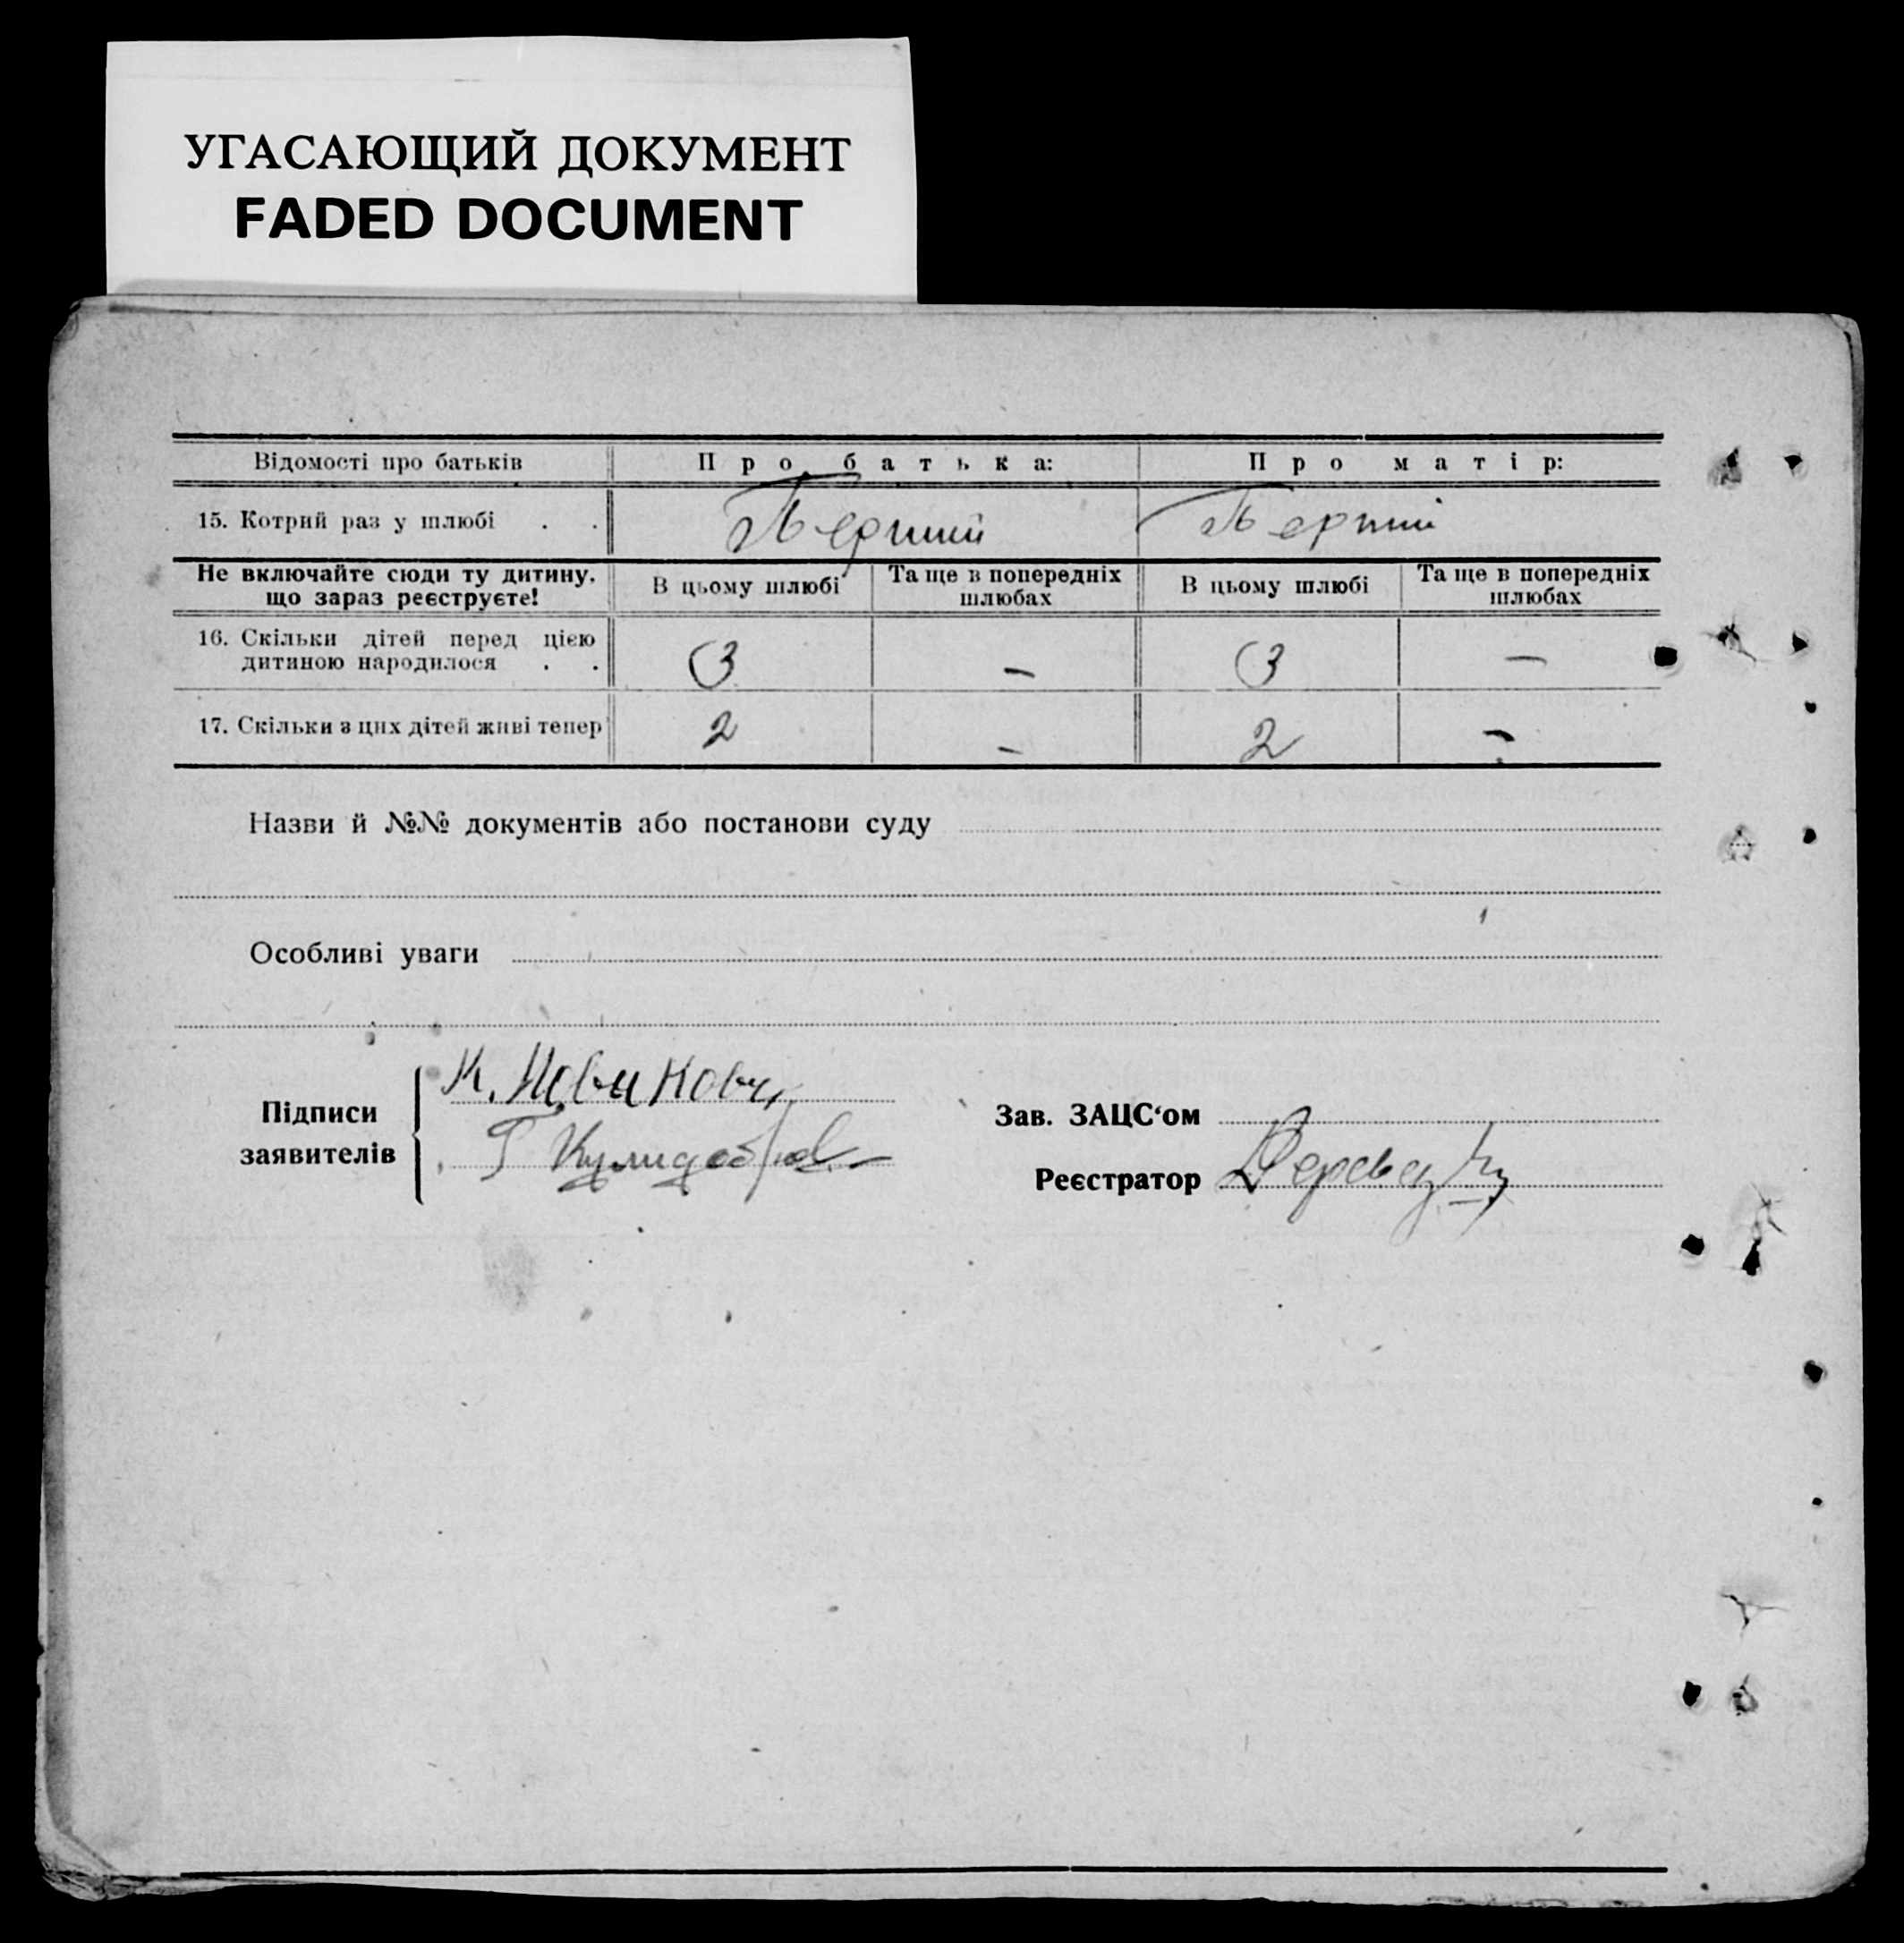 УГАСАЮЩИЙ ДОКУМЕНТ
FADED DOCUMENT
Відомості про батьків Про батька: Про матір:
15. Котрий раз у шлюбі . . Перший Перший
Не включайте сюди ту дитину, що зараз реєструєте! В цьому шлюбі Та ще в попередніх шлюбах В цьому шлюбі Та ще в попередніх шлюбах
16. Скільки дітей перед цією
дитиною народилося . . 3 — 3 —
17. Скільки з цих дітей живі тепер 2 — 2 —
Назви й №№ документів або постанови суду
Особливі уваги
Підписи
заявителів
К.
Г
Зав. ЗАЦС‘ом
Реєстратор